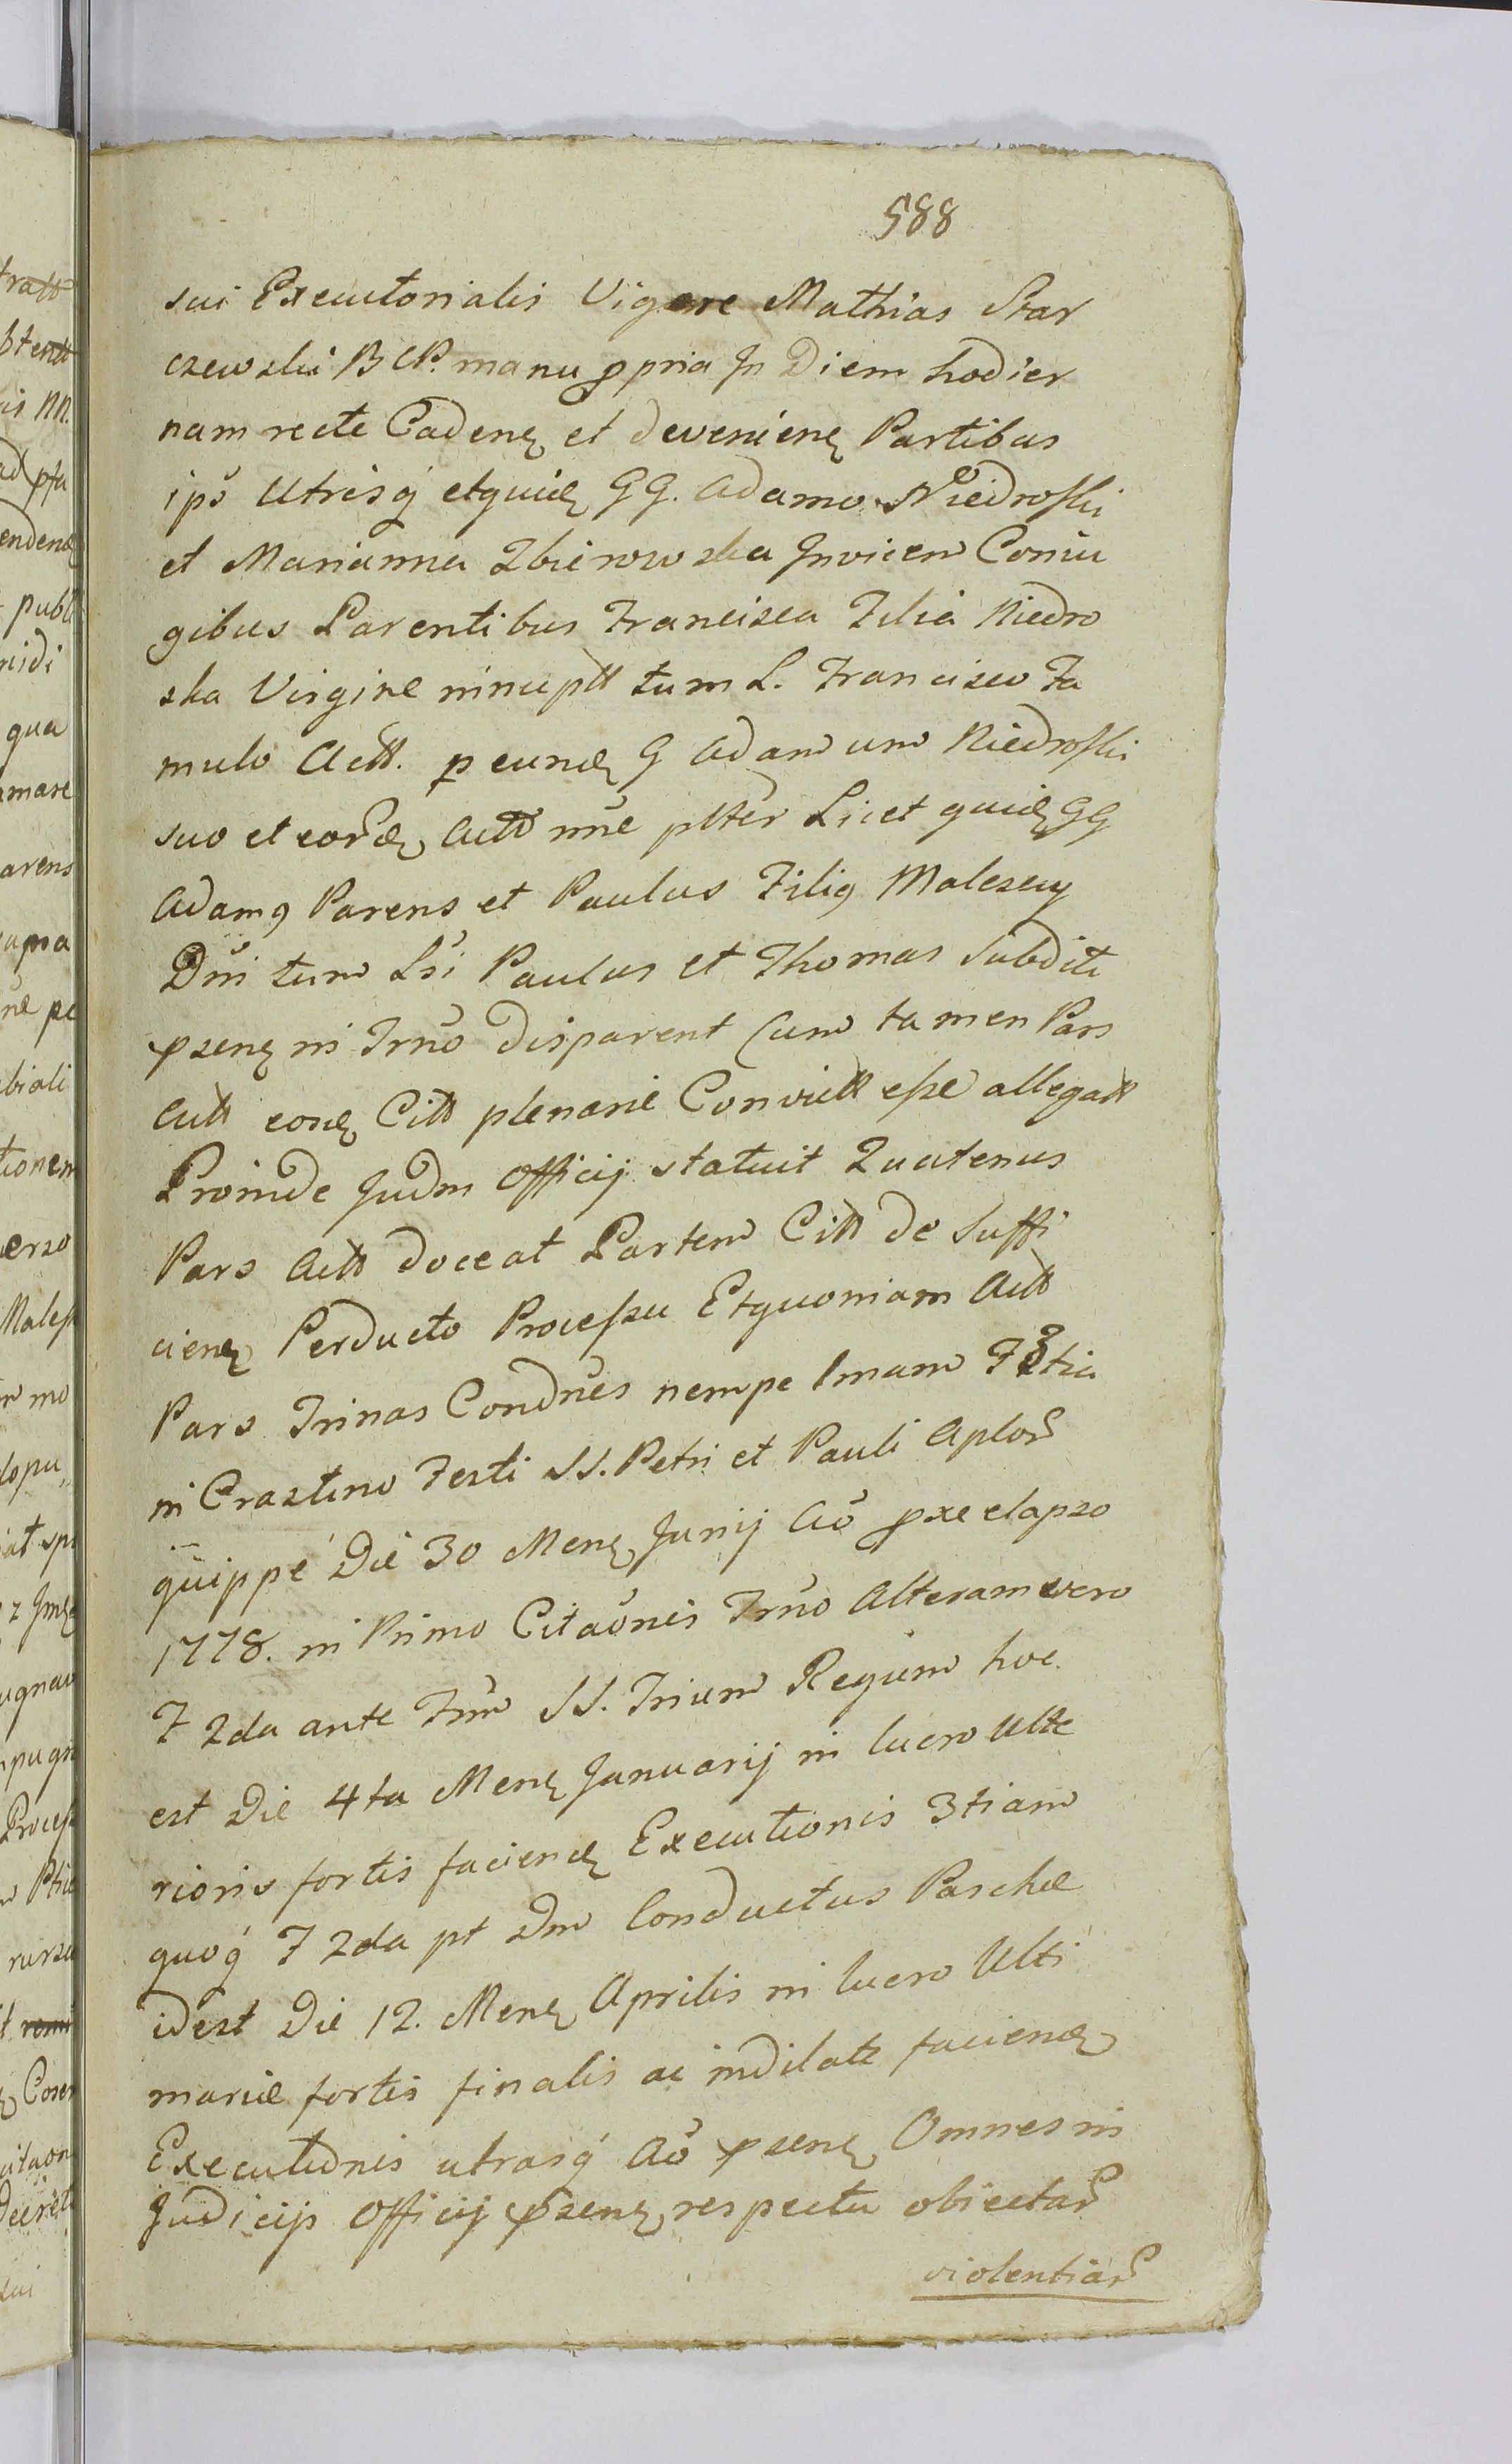 588
sui Executorialis Vigore Mathias Star
czewski BCP. manu ppria In Diem hodier
nam recte Caden et devenien Partibus
ips Utrisq etquid GG. Adamo Niedroski
et Marianna Zbierowska Invicem Coniu
gibus Parentibus Francisca Filia Niedro
ska Virgine innuptt tum L. Francisco Fa
mulo Actt. p eund G Adamum Niedroski
suo et eord Actt nne pltter Licet quid GG
Adam9 Parens et Paulus Fili9 Malczewy
Dni tum Lsi Paulus et Thomas Subditi
pzen in Trno disparent Cum tamen Pars
Actt eosd Citt plenarie Convictt esse allegatt
Proinde Judm Officij statuit Quatenus
Pars Actt doceat Partem Citt de Suffi
cien Perducto Processu Etquoniam Actt
Pars Trinas Condnes nempe Imam F 3tia
in Crastino Festi SS. Petri et Pauli Aplor
quippe Die 30 Mens Junij Ao pxe elapso
1778. in Primo Citaonis Trno Alteram vero
F 2da ante Fm SS. Trium Regum hoc
est Die 4ta Mens Januarij in lucro Ulte
rioris fortis faciend Executionis 3tiam
quoq F 2da pt Dm Conductus Paschae
idest Die 12. Mens Aprilis in lucro Ulti
mariae fortis finalis ac indilate faciend
Executionis utrasq Ao pzen Omnes in
Judicijs Officij pzen respectu obiectar
violentiar